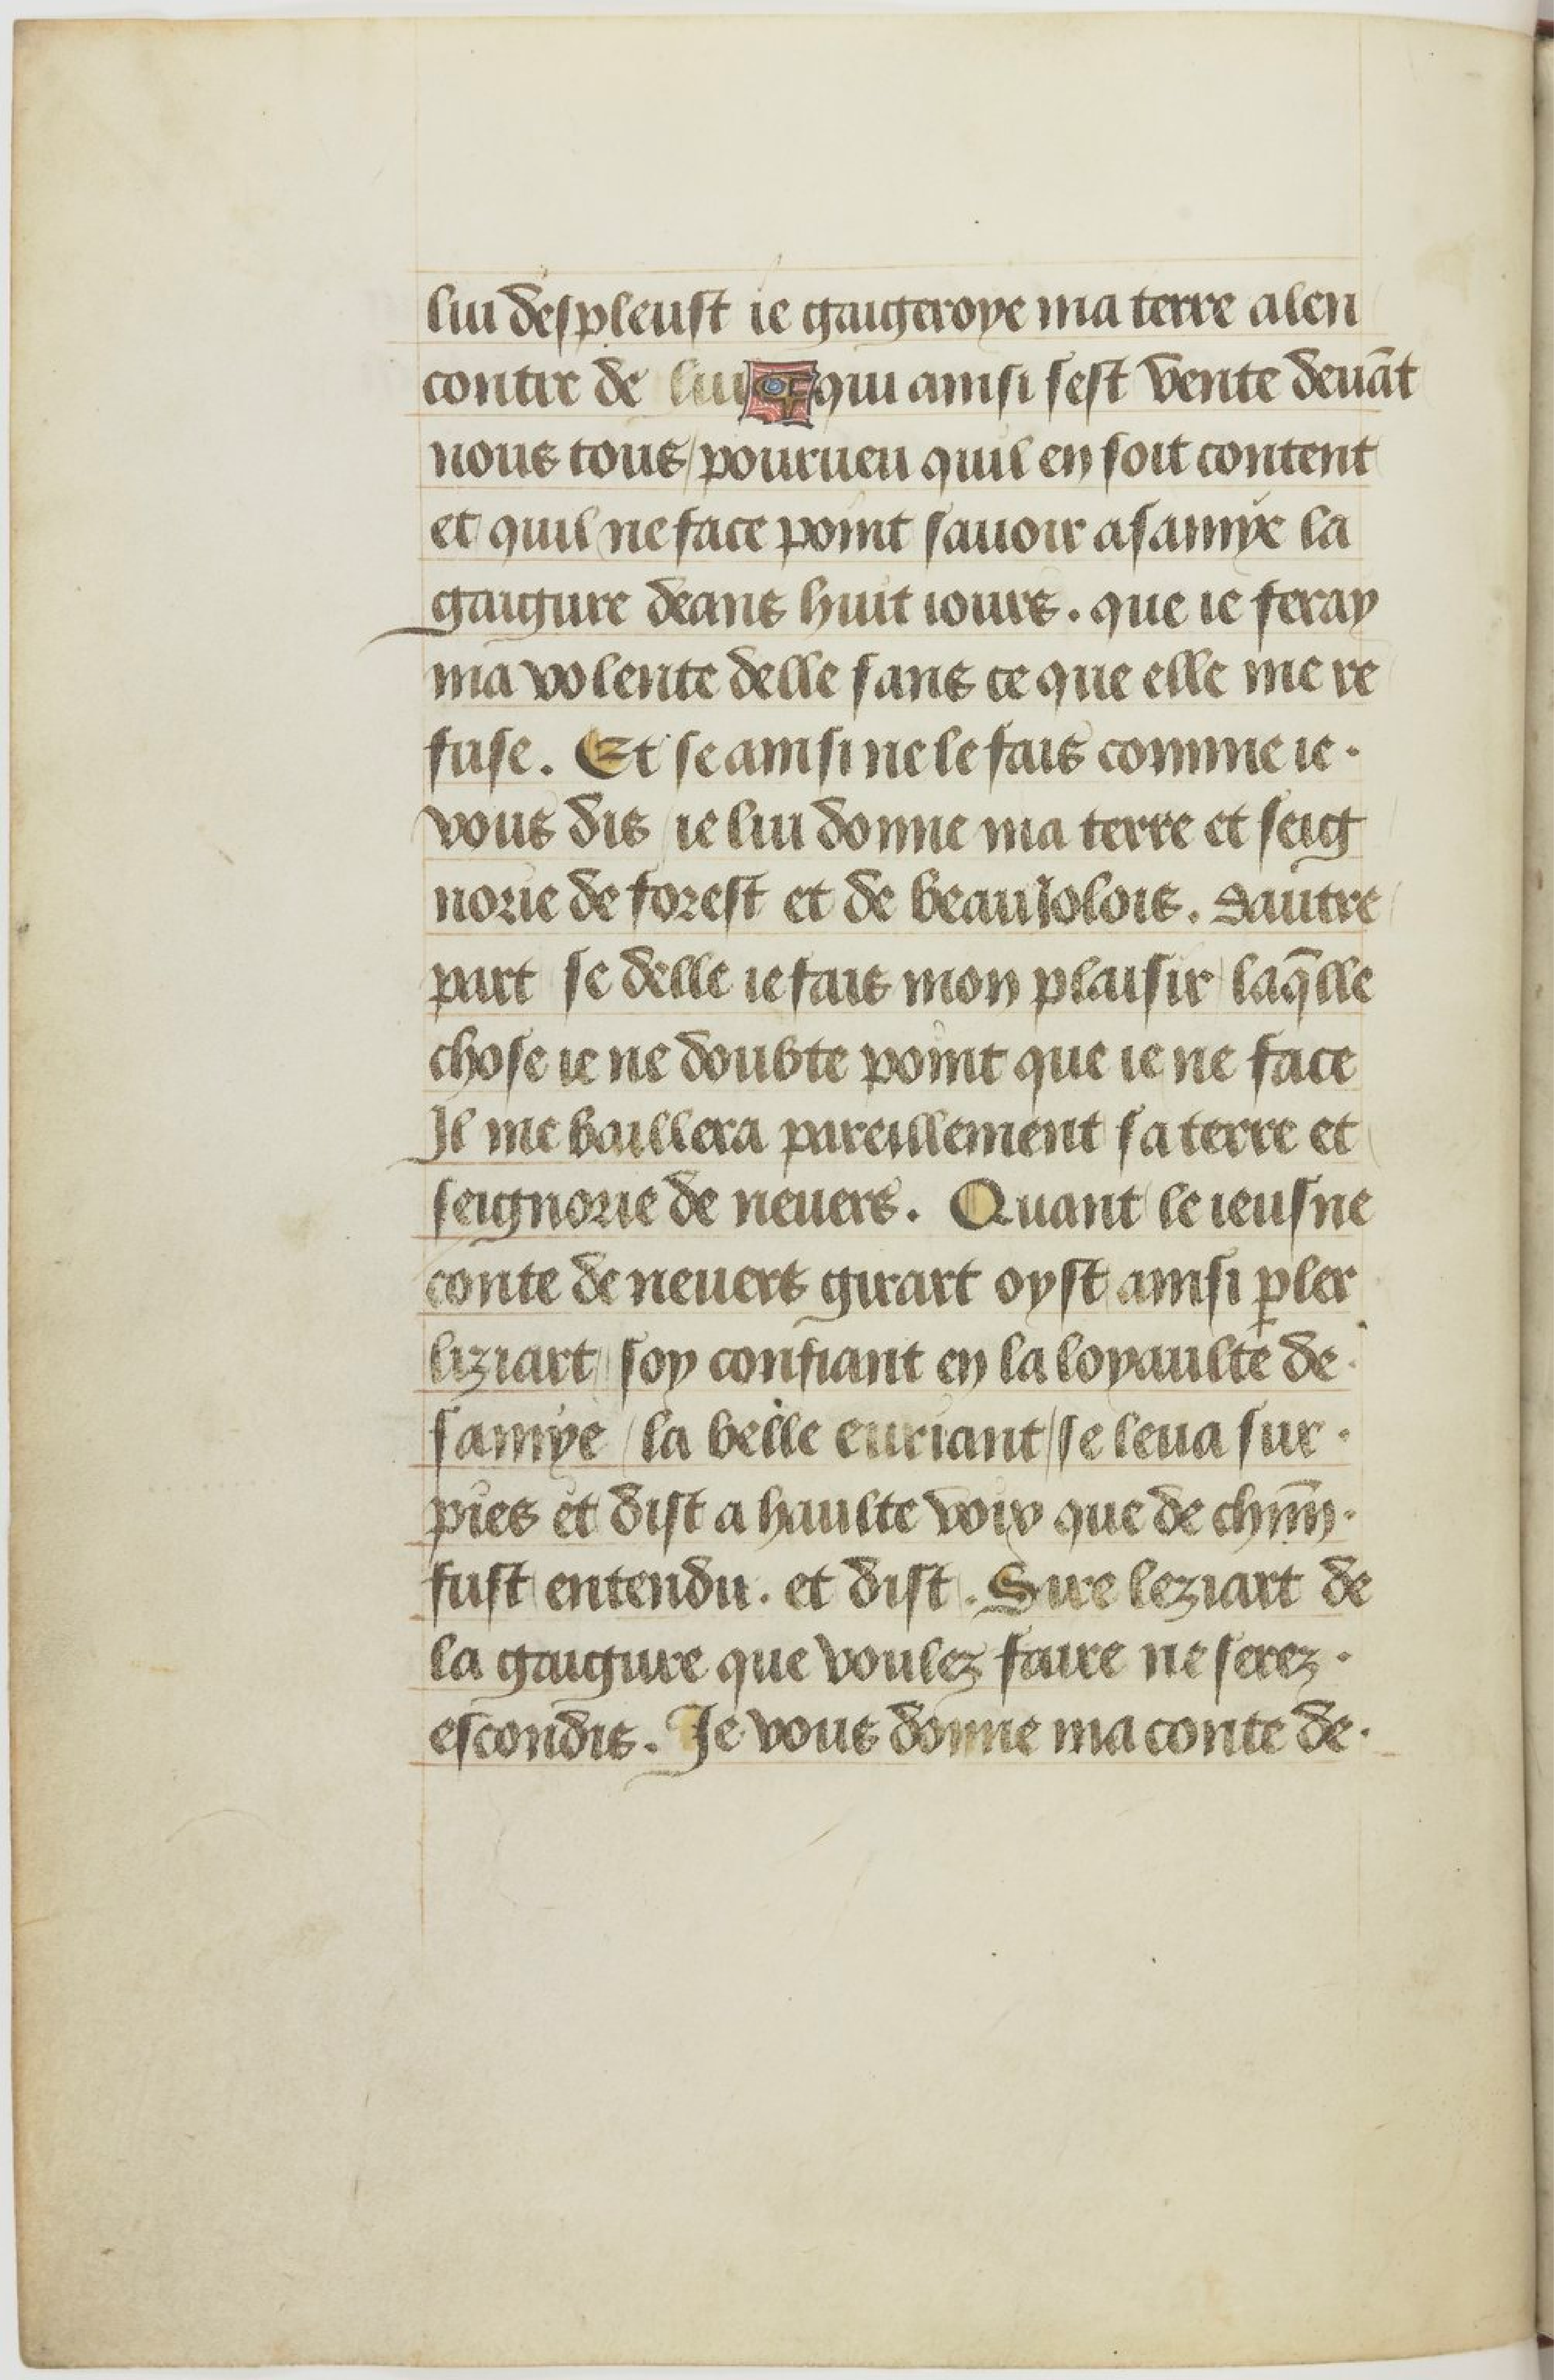 lui despleust ie gaigeroye ma terre alen
contre de lui qui ainsi sest vente deuãt
nous tous / pourueu quil en soit content
et quil ne face point sauoir a samye la
gaigure deans huit iours . que ie feray
ma volente delle sans ce que elle me re
fuse . Et se ainsi ne le fais comme ie .
vous dis / ie lui donne ma terre et seig
norie de forest et de beauiolois . Dautre
part se delle ie fais mon plaisir laq̃lle
chose ie ne doubte point que ie ne face
Il me baillera pareillement sa terre et
seignorie de neuers . Quant le ieusne
conte de neuers girart oyst ainsi ꝑler
liziart / soy confiant en la loyaulte de .
samye / la belle euriant / se leua sur .
pies et dist a haulte voix que de chm̃ .
fust entendu . et dist . Sire leziart de
la gaigure que voulez faire ne serez .
escondis . Je vous donne ma conte de .